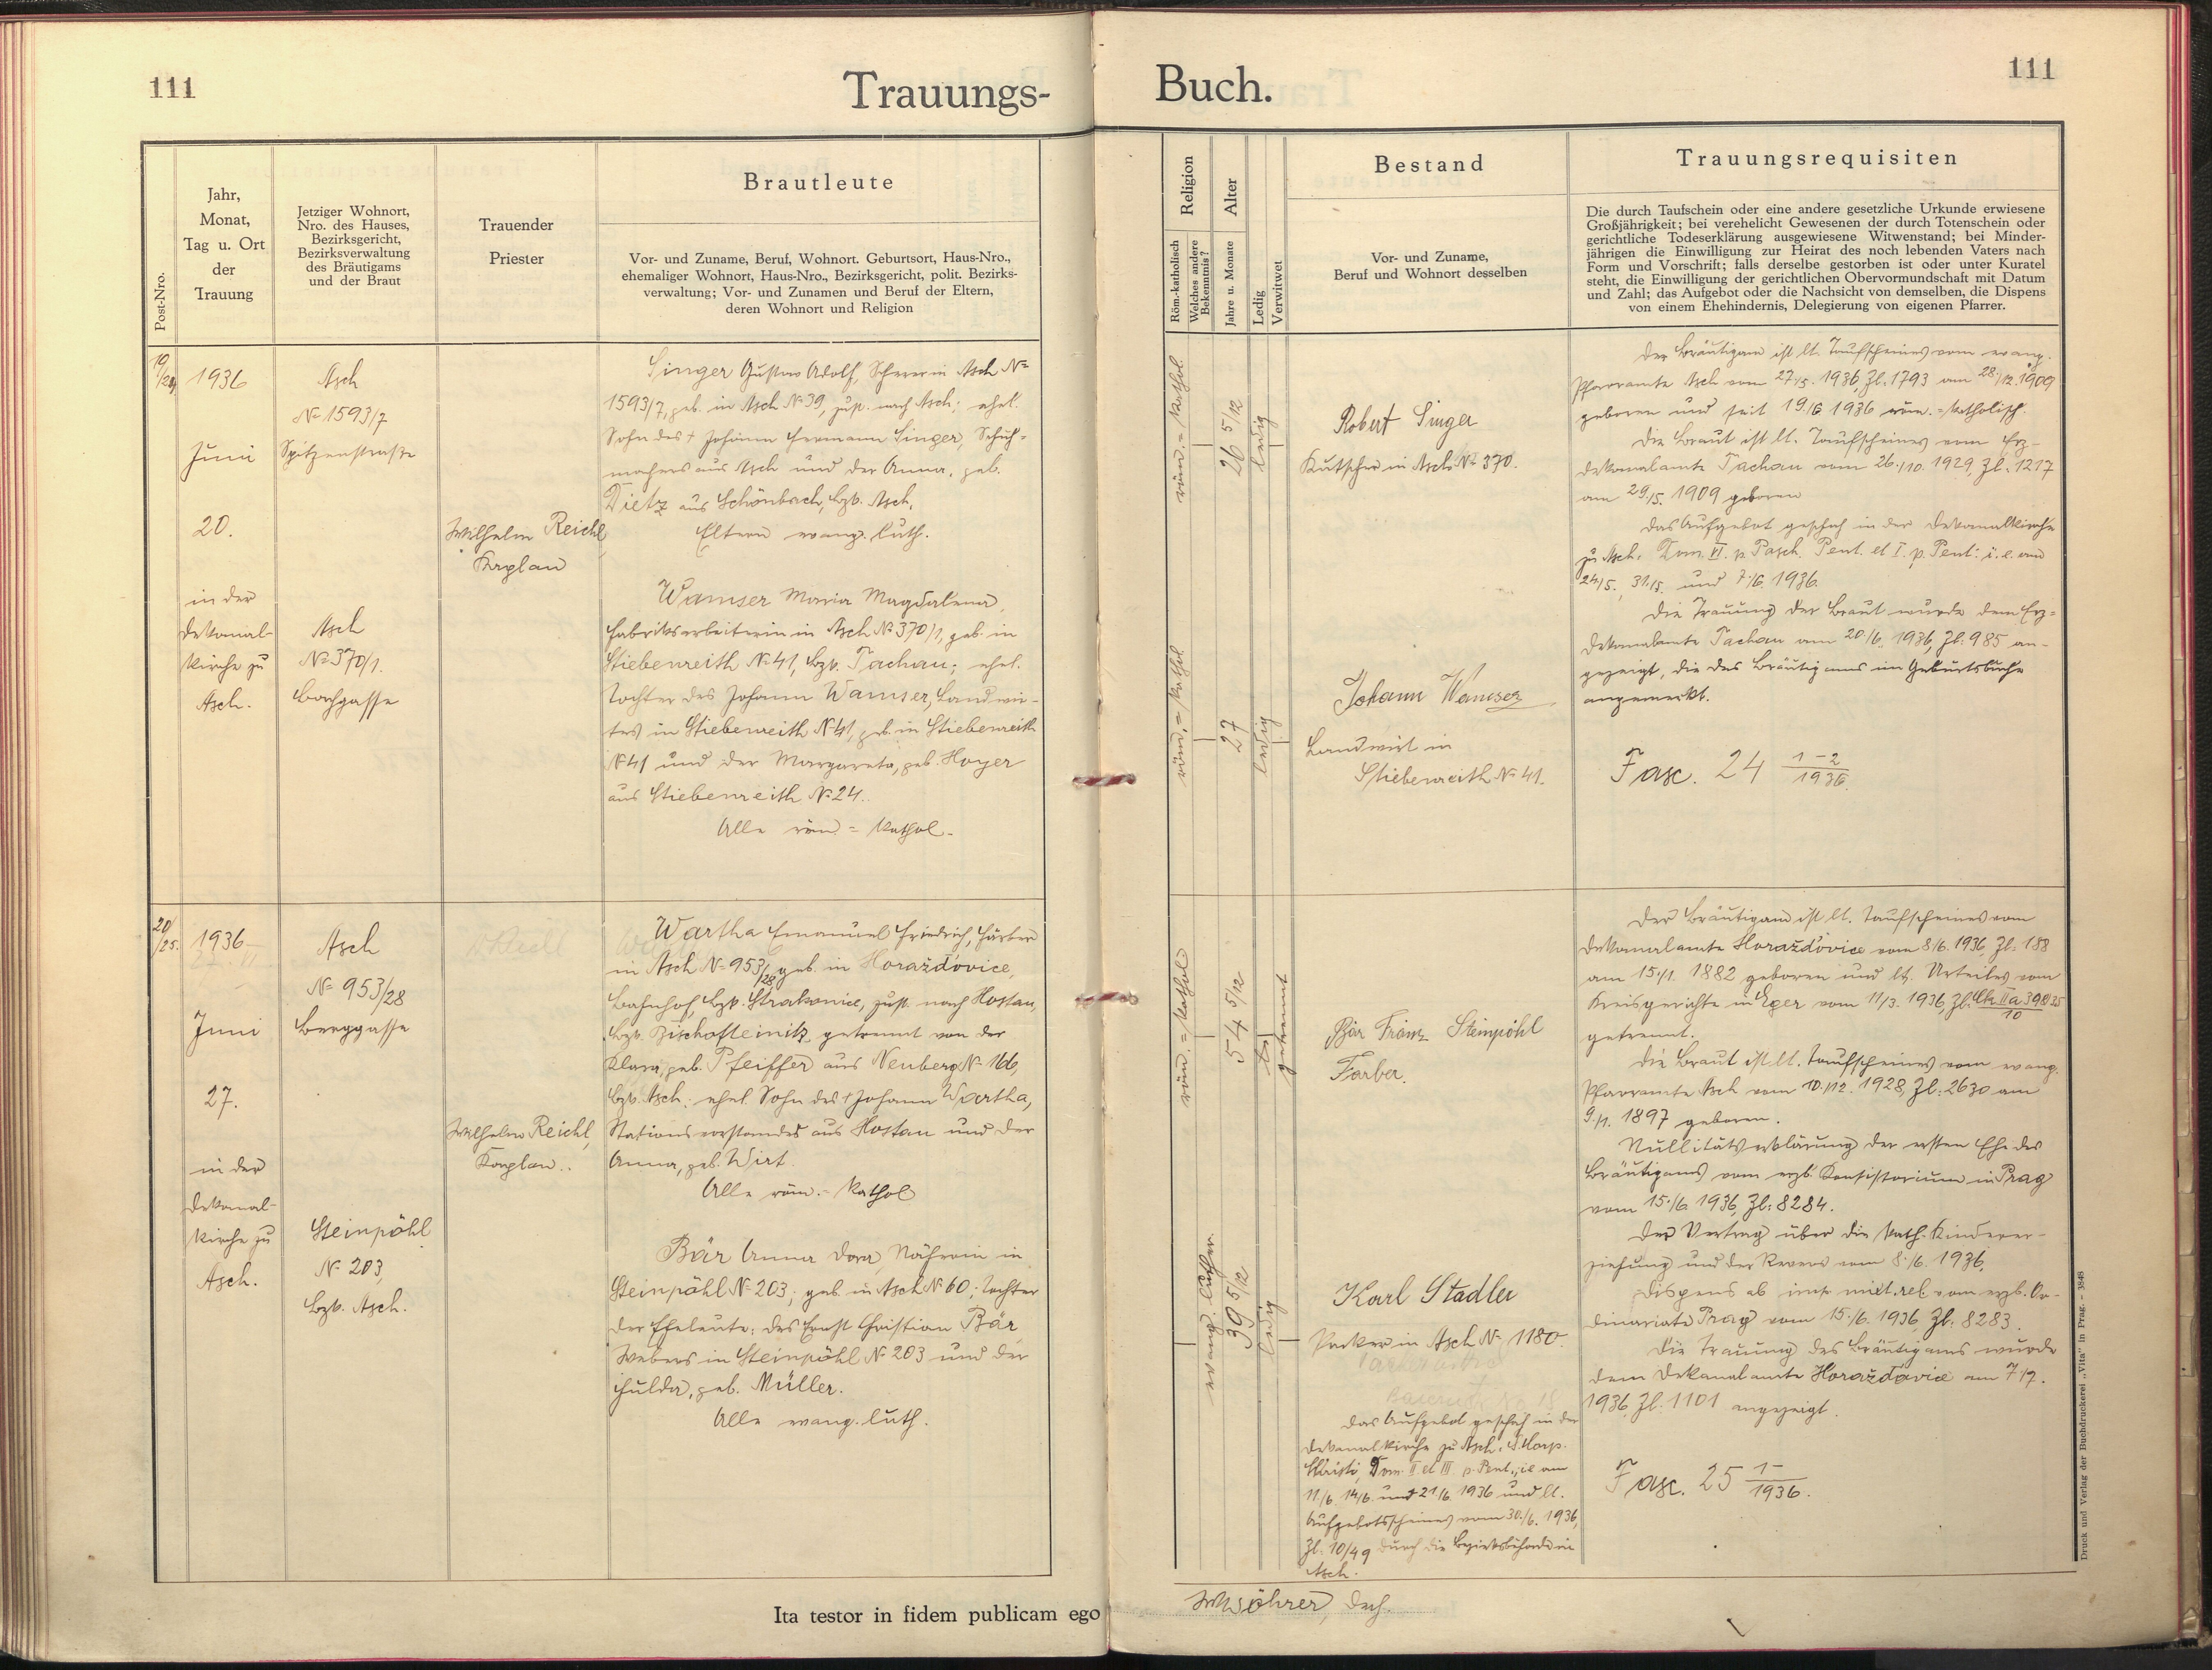 111
Trauungs-
Post-Nro.
Jahr,
Monat,
Tag u. Ort
der
Trauung
Jetziger Wohnort,
Nro. des Hauses,
Bezirksgericht,
Bezirksverwaltung
des Bräutigams
und der Braut
Trauender
Priester
Brautleute
Vor- und Zuname, Beruf, Wohnort. Geburtsort, Haus-Nro.,
ehemaliger Wohnort, Haus-Nro., Bezirksgericht, polit. Bezirks-
verwaltung; Vor- und Zunamen und Beruf der Eltern,
deren Wohnort und Religion
19/24
1936
Juni
20.
in der
Dekanal-
kirche zu
Asch.
Asch
No 1593/7
Spitzenstraße
Asch
No 370/1.
Bachgasse
Wilhelm Reichl
Kaplan
Singer Gustav Adolf, Scherer in Asch No
1593/7, geb. in Asch No 39, zust. nach Asch; ehel.
Sohn des † Johann Hermann Singer, Schuh-
machers aus Asch und der Anna, geb.
Dietz aus Schönbach, Bzk. Asch.
Eltern evang. luth.
Wamser Maria Magdalena,
Fabriksarbeiterin in Asch No 370/1, geb. in
Stiebenreith No 41, Bzk. Tachau; ehel.
Tochter des Johann Wamser, Landwir-
tes in Stiebenreith No 41, geb. in Stiebenreith
No 41 und der Margareta, geb. Hoyer
aus Stiebenreith No 24.
Alle röm.=kathol.
20/25.
1936
Juni
27.
in der
Dekanal-
kirche zu
Asch.
Asch
No 953/28
Berggasse
Steinpöhl
No 203,
Bzk. Asch.
Wilhelm Reichl,
Kaplan.
Wartha Emanuel Friedrich, Färber
in Asch No 953/28, geb. in Horažďovice,
Bahnhof, Bzk. Strakonice, zust. nach Hostau,
Bzk. Bischofteinitz, getrennt von der
Klara, geb. Pfeiffer aus Neuberg No 166,
Bzk. Asch; ehel. Sohn des † Johann Wartha,
Stationsvorstandes aus Hostau und der
Anna, geb. Wirt.
Alle röm.=kathol
Bär Anna Dora, Näherin in
Steinpöhl No 203; geb. in Asch No 60; Tochter
der Eheleute: des Ernst Christian Bär,
Webers in Steinpöhl No 203 und der
Hulda, geb. Müller.
Alle evang. luth.
Ita testor in fidem publicam ego
Buch.
111
Religion
Röm.-katholisch
Welches andere
Bekenntnis?
Alter
Jahre u. Monate
Ledig
Verwitwet
Bestand
Vor- und Zuname,
Beruf und Wohnort desselben
Trauungsrequisiten
Die durch Taufschein oder eine andere gesetzliche Urkunde erwiesene
Großjährigkeit; bei verehelicht Gewesenen der durch Totenschein oder
gerichtliche Todeserklärung ausgewiesene Witwenstand; bei Minder-
jährigen die Einwilligung zur Heirat des noch lebenden Vaters nach
Form und Vorschrift; falls derselbe gestorben ist oder unter Kuratel
steht, die Einwilligung der gerichtlichen Obervormundschaft mit Datum
und Zahl; das Aufgebot oder die Nachsicht von demselben, die Dispens
von einem Ehehindernis, Delegierung von eigenen Pfarrer.
röm.=kathol.
26 5/12
ledig
röm.=kathol.
27
ledig
Robert Singer
Kutscher in Asch No 370.
Johann Wamser
Landwirt in
Stiebenreith No 41.
Der Bräutigam ist lt. Taufscheines vom evang.
Pfarramte Asch vom 27./5. 1936, Zl. 1793 am 28./12. 1909
geboren und seit 19./6 1936 röm.=katholisch.
Die Braut ist lt. Taufscheines vom Erz-
dekanalamte Tachau vom 26./10. 1929, Zl. 1217
am 29./5. 1909 geboren
Das Aufgebot geschah in der Dekanalkirche
zu Asch: Dom. VI. p. Pasch. Pent. et I. p. Pent: i. e. am
24./5. 31./5. und 7./6 1936.
Die Trauung der Braut wurde dem Erz-
dekanalamte Tachau am 20./6. 1936, Zl: 985 an-
gezeigt, die des Bräutigams im Geburtsbuche
angemerkt.
Fasc. 24 1-2/1936.
röm.=kathol
54 5/12
getrennt
evang. luther.
39 5/12
ledig
Bär Franz Steinpöhl
Färber.
Karl Stadler
Packer in Asch No 1180.
Das Aufgebot geschah in der
Dekanalkirche zu Asch: Korp.
Christi, Dom. II et III. p. Pent., ie am
11./6. 14./6. und 21./6. 1936 und lt.
Aufgebotsscheines vom 30./6. 1936,
Zl: 10/49 durch die Bezirksbehörde in
Asch.
Der Bräutigam ist lt. Taufscheines vom
Dekanalamte Horažďovice vom 8./6. 1936, Zl. 188
am 15./1. 1882 geboren und lt. Urteiles vom
Kreisgerichte in Eger vom 11/3. 1936, Zl.
getrennt.
Die Braut ist lt. Taufscheines vom evang.
Pfarramte Asch vom 10./12. 1928, Zl: 2630 am
9./1. 1897 geboren.
Nullitätserklärung der ersten Ehe des
Bräutigams vom erzb. Konsistorium in Prag
vom 15./6. 1936, Zl: 8284.
Der Vertrag über die kath. Kinderer-
ziehung und der Revers vom 8./6. 1936.
Dispens ab imp. mixt. rel. vom erzb. Or-
dinariate Prag vom 15./6. 1936, Zl: 8283.
Die Trauung des Bräutigams wurde
dem Dekanalamte Horažďovice am 7/7.
1936 Zl: 1101 angezeigt.
Fasc. 25 1-/1936.
Wöhrer, Dech.
Druck und Verlag der Buchdruckerei „Vita" in Prag. - 3848